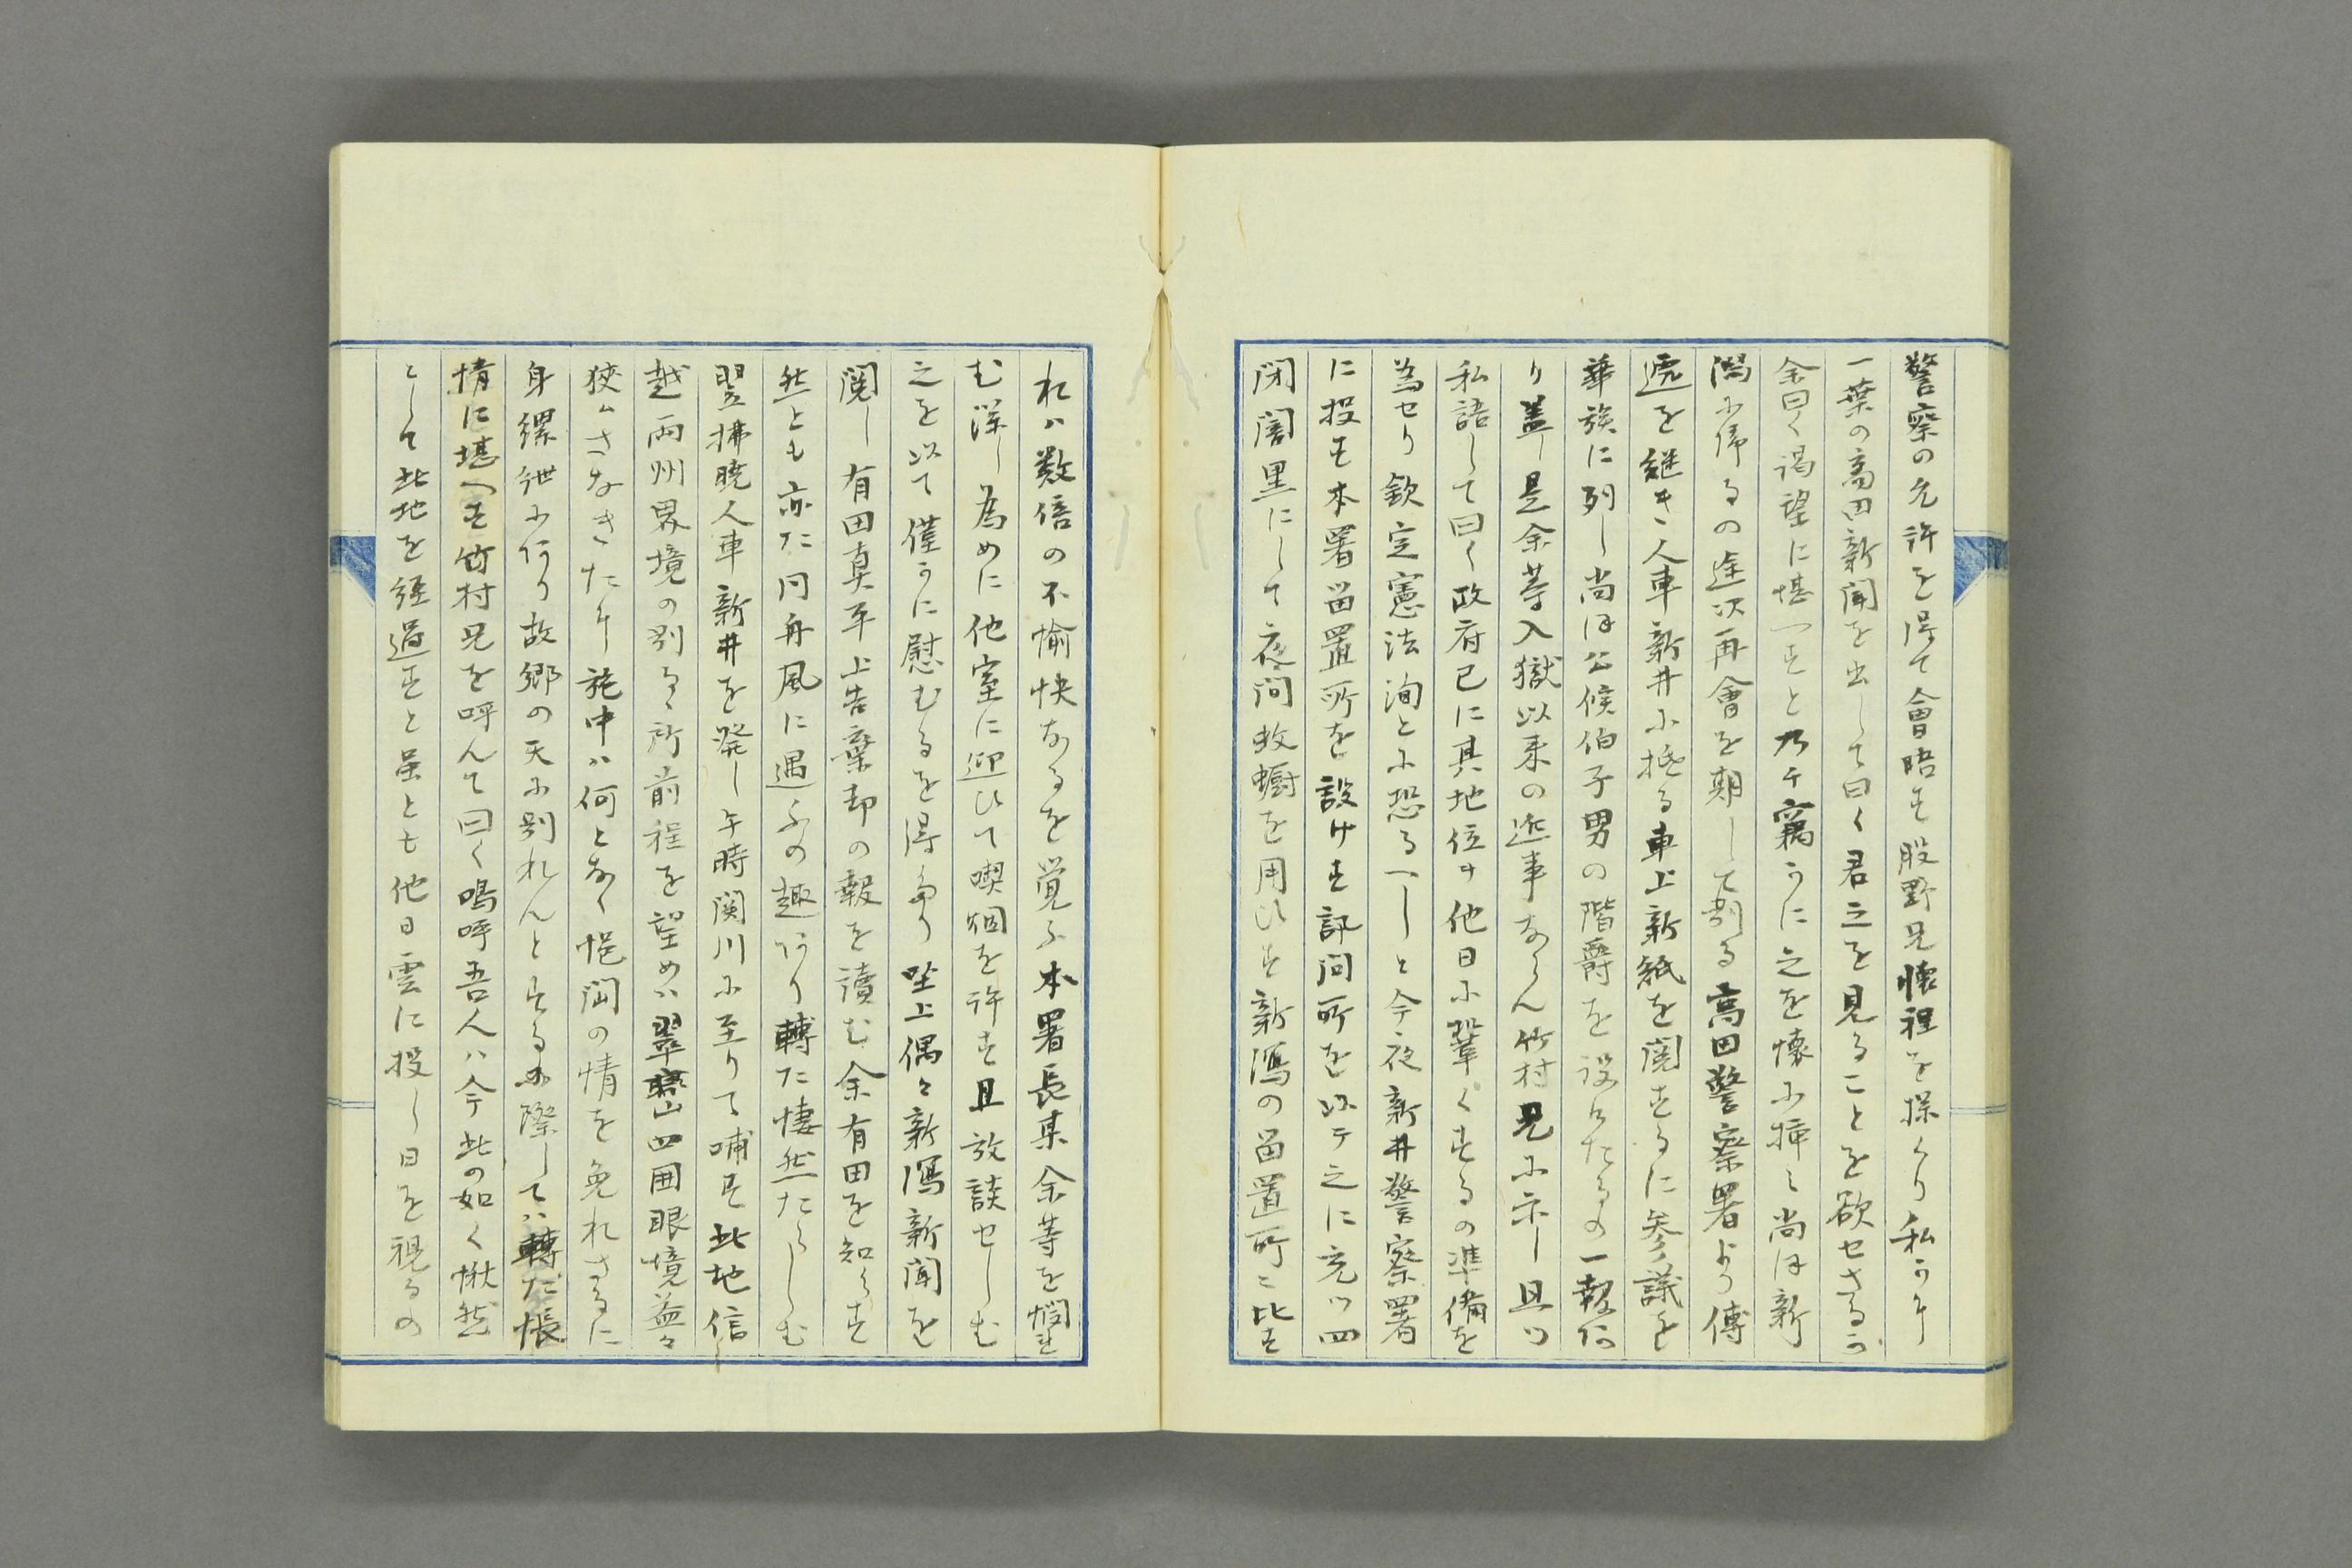 警察の允許を得て會晤す股野兄懐裡を探くり私かに
一葉の高田新聞を出して曰く君之を見ることを欲せさるか
余曰く渇望に堪へすと乃チ竊かに之を懐に挿ミ尚ほ新
潟に帰るの途次再會を期して別る高田警察署より傳
遞を継き人車新井に抵る車上新紙を閲するに参議を
華族に列し尚ほ公候伯子男の階爵を設けたるの一報あ
り蓋し是余等入獄以来の近事ならん竹村兄に示し且ツ
私語して曰く政府已に其地位ヲ他日に鞏くするの準備を
為セり欽定憲法洵とに恐るへしと今夜新井警察署
に投す本署留置所を設けす訊問所を以テ之に充ツ四
閉闇黒にして夜間蚊蟵を用ひす新潟の留置所ニ比す
れハ数倍の不愉快なるを覚ふ本署長某余等を憫れ
む深し為めに他室に迎ひて喫烟を許す且放談せしむ
之を以て僅かに慰むるを得たり坐上偶々新潟新聞を
閲し有田真平上告棄却の報を讀む余有田を知らす
然とも亦た同舟風に遇ふの趣あり轉た悽然たらしむ
翌拂暁人車新井を発し午時関川に至りて哺す此地信
越両州界境の別るゝ所前程を望めハ翠巒四囲眼境益々
狭くさなきたに旅中ハ何となく悒悶の情を免れさるに
身縲絏に在り故郷の天に別れんとするに際してハ轉た悵
情に堪へす竹村兄を呼んて曰く嗚呼吾人ハ今此の如く愀然
として此地を経過すと虽とも他日雲に投し日を視るの